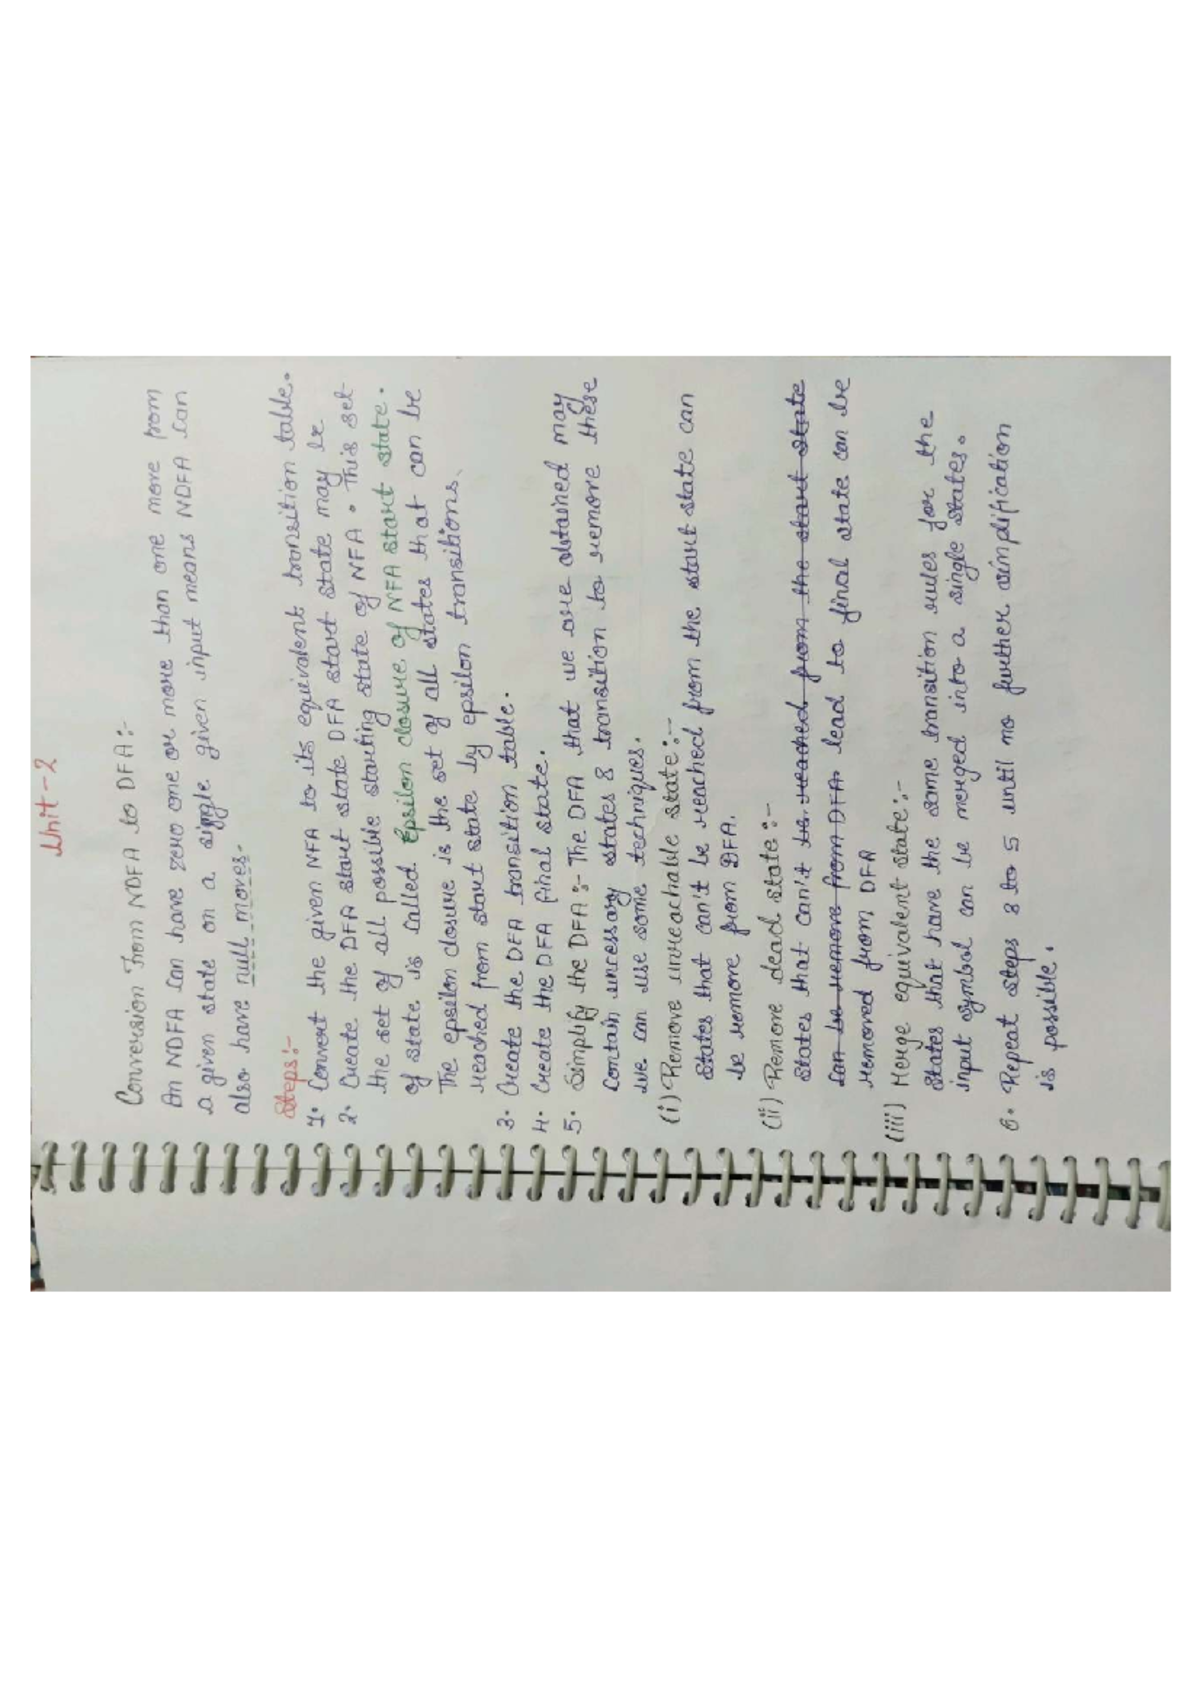 Unit-2
Conversion from NDFA to DFA:-
An NDFA can have zero one or more than one move from
a given state on a single given input means NDFA can
also have null moves-
Steps:-
1. Convert the given NFA to its equivalent transition table.
2. Create the DFA start state DFA start state may be
the set of all possible starting state of NFA. This set
of state is called Epsilon closure of NFA start state.
The epsilon closure is the set of all states that can be
reached from start state by epsilon transitions.
3. Create the DFA transition table.
4. Create the DFA final state.
5. Simplify the DFA:- The DFA that we are obtained may
contain uncessary states & transition to remove these
we can use some techniques.
(i) Remove unreachable state:-
States that can't be reached from the start state can
be remove from DFA.
(ii) Remove dead state:-
States that can't be reached from the start state
can be remove from DFA. lead to final state can be
removed from DFA
(iii) Merge equivalent state:-
States that have the same transition rules for the
input symbol can be merged into a single states.
6. Repeat steps 3 to 5 until no further simplification
is possible.